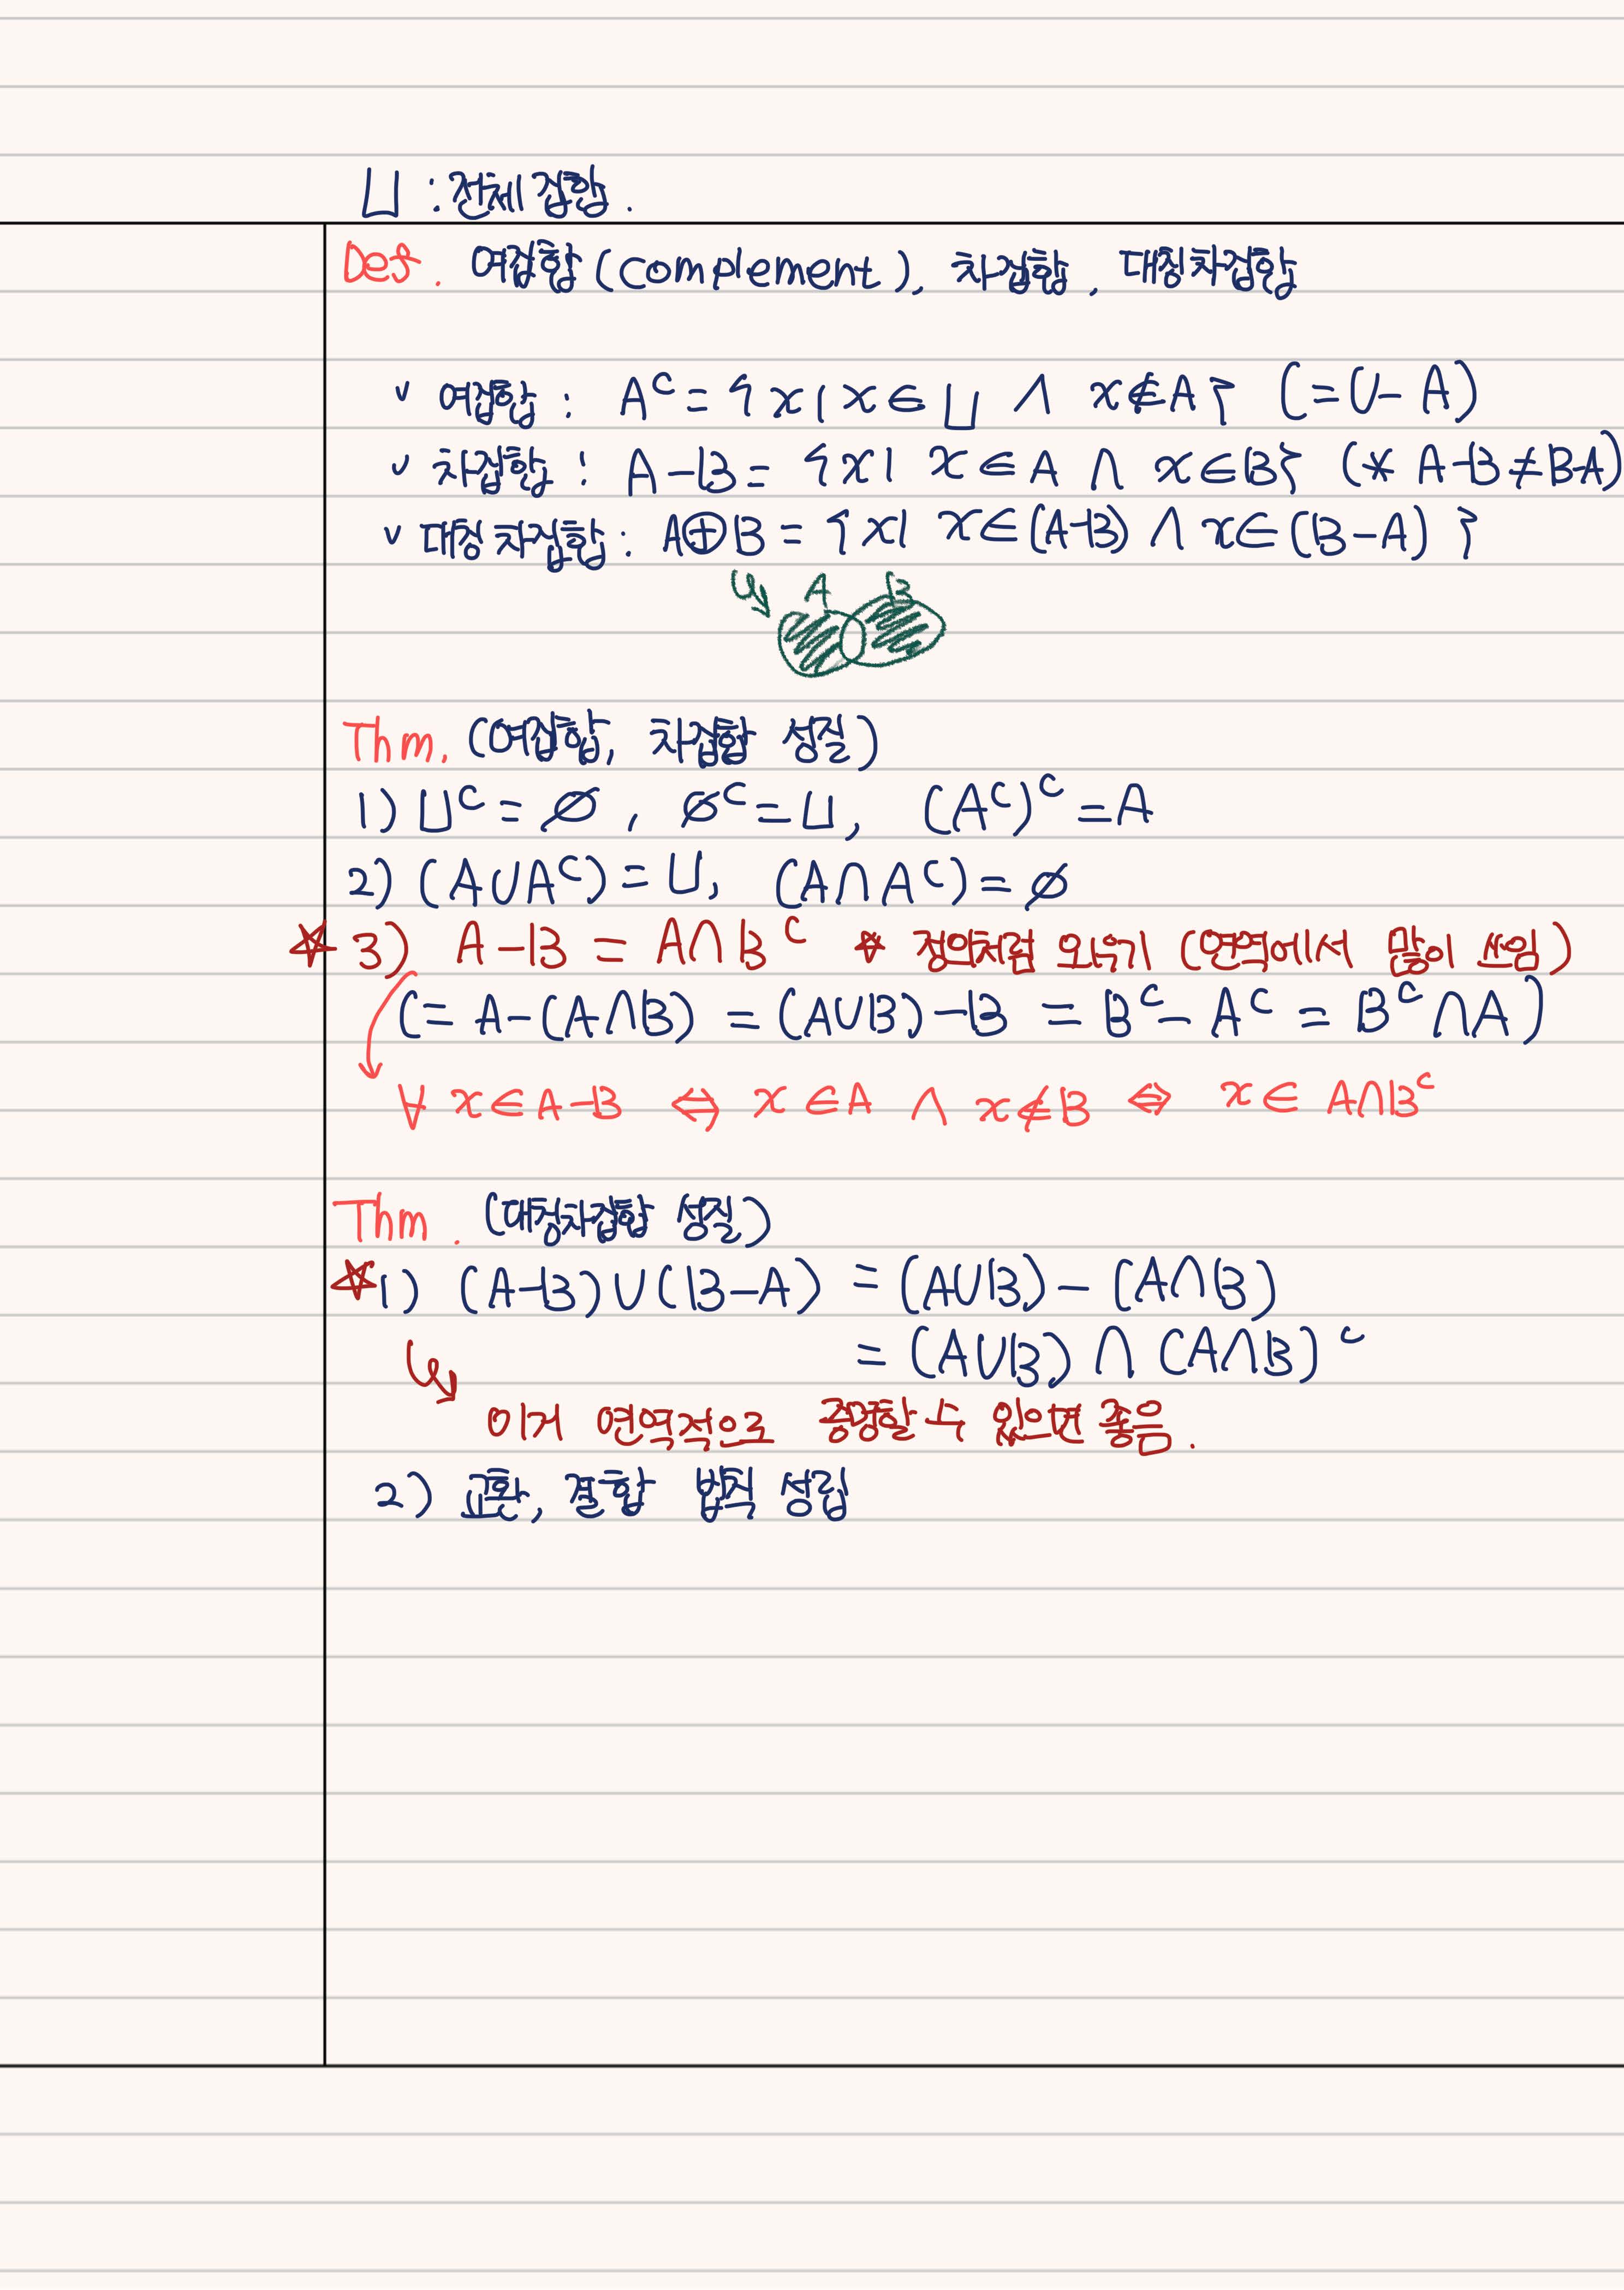 U : 전체 집합.
Def. 여집합 (complement), 차집합, 대칭차집합
v 여집합 : A^c = {x | x ∈ U ∧ x ∉ A} (= U - A)
v 차집합 : A - B = {x | x ∈ A ∧ x ∈ B} (* A-B ≠ B-A)
v 대칭 차집합 : A⊕B = {x | x ∈ (A-B) ∧ x ∈ (B-A) }
A B
Thm. (여집합, 차집합 성질)
1) U^c = ∅ , ∅^c = U, (A^c)^c = A
2) (A∪A^c) = U, (A∩A^c) = ∅
☆ 3) A - B = A∩B^c ☆ 정의처럼 외우기 (연역에서 많이 쓰임)
(= A-(A∩B) = (A∪B)-B = B^c - A^c = B^c∩A)
∀ x ∈ A-B ⇔ x ∈ A ∧ x ∉ B ⇔ x ∈ A∩B^c
Thm. (대칭차집합 성질)
☆ 1) (A-B)∪(B-A) = (A∪B) - (A∩B)
= (A∪B) ∩ (A∩B)^c
이거 연역적으로 증명할 수 있으면 좋음.
2) 교환, 결합 법칙 성립